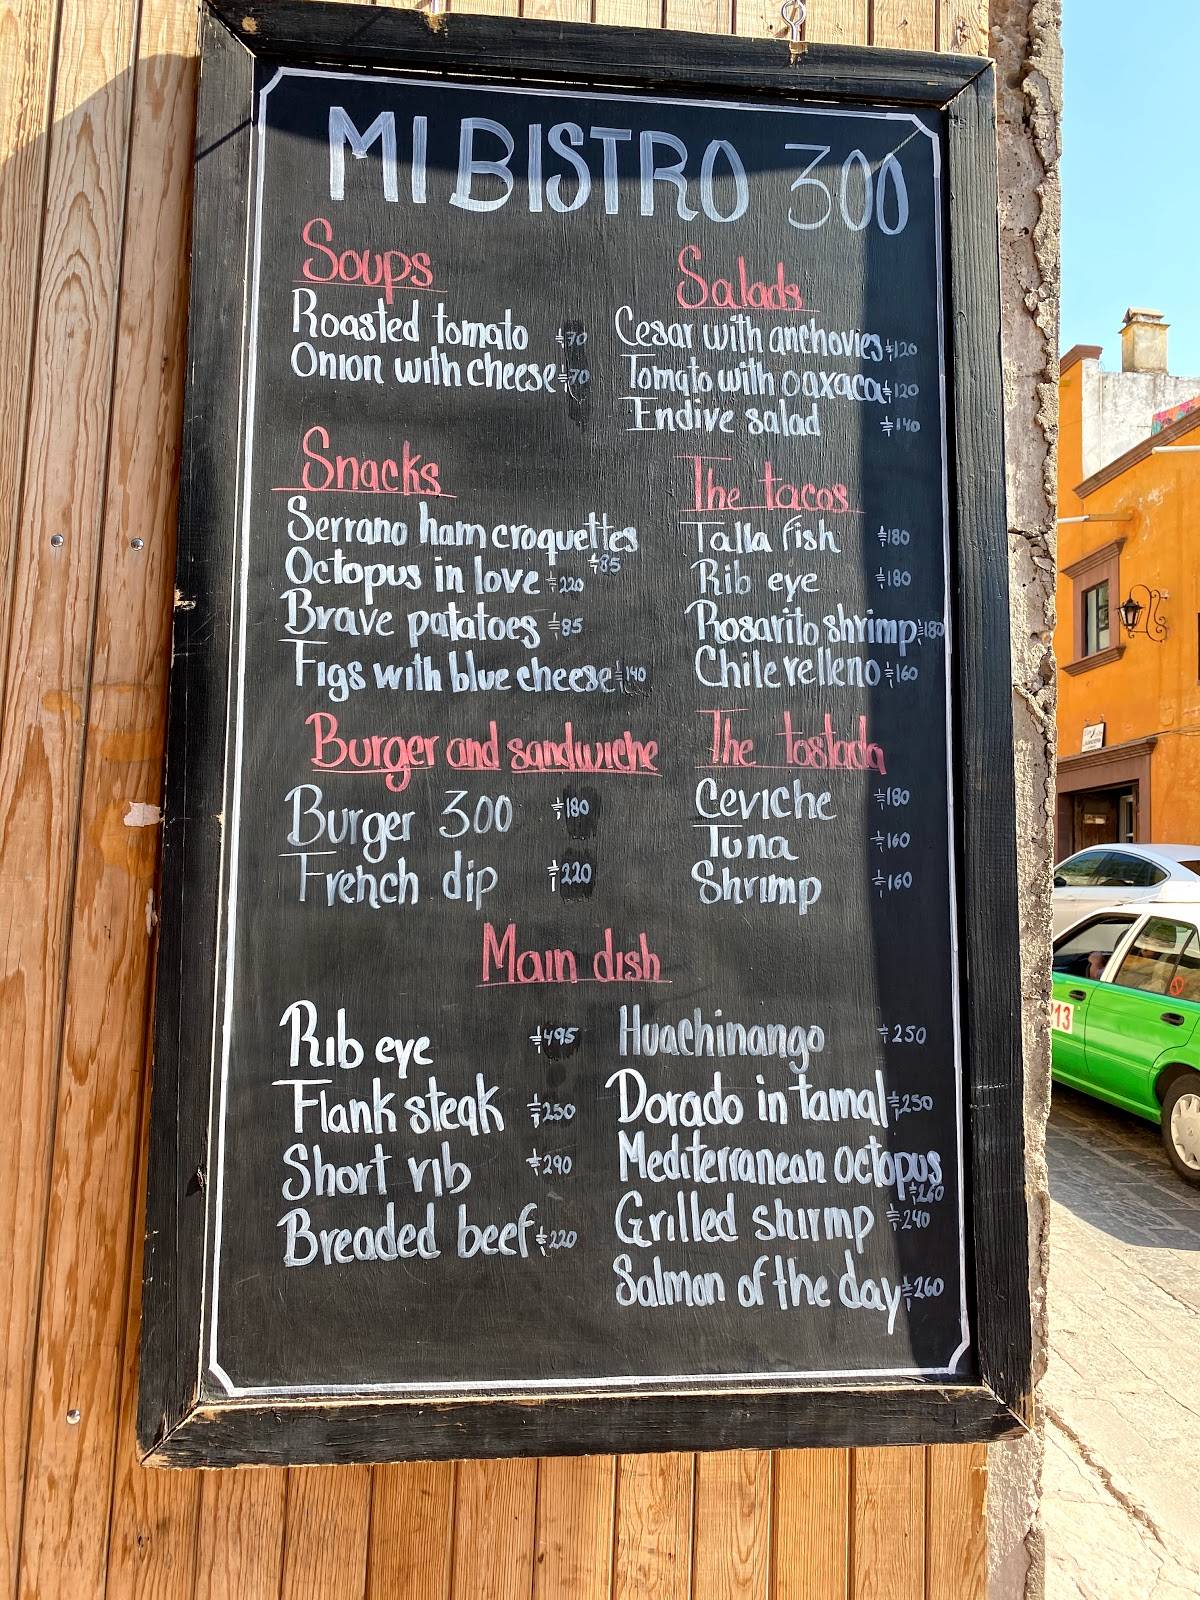 MI BISTRO 300
Soups
Roasted tomato $70
Onion with cheese $70
Salads
Cesar with anchovies $120
Tomato with oaxaca $120
Endive salad $140
Snacks
Serrano ham croquettes
$85
Octopus in love $220
Brave patatoes $85
Figs with blue cheese $140
The tacos
Talla fish $180
Rib eye $180
Rosarito shrimp $180
Chile relleno $160
Burger and sandwiche
Burger 300 $180
French dip $220
The tostada
Ceviche $180
Tuna $160
Shrimp $160
Main dish
Rib eye $495
Flank steak $250
Short rib $290
Breaded beef $220
Huachinango $250
Dorado in tamal $250
Mediterranean octopus
$260
Grilled shirmp $240
Salmon of the day $260
13